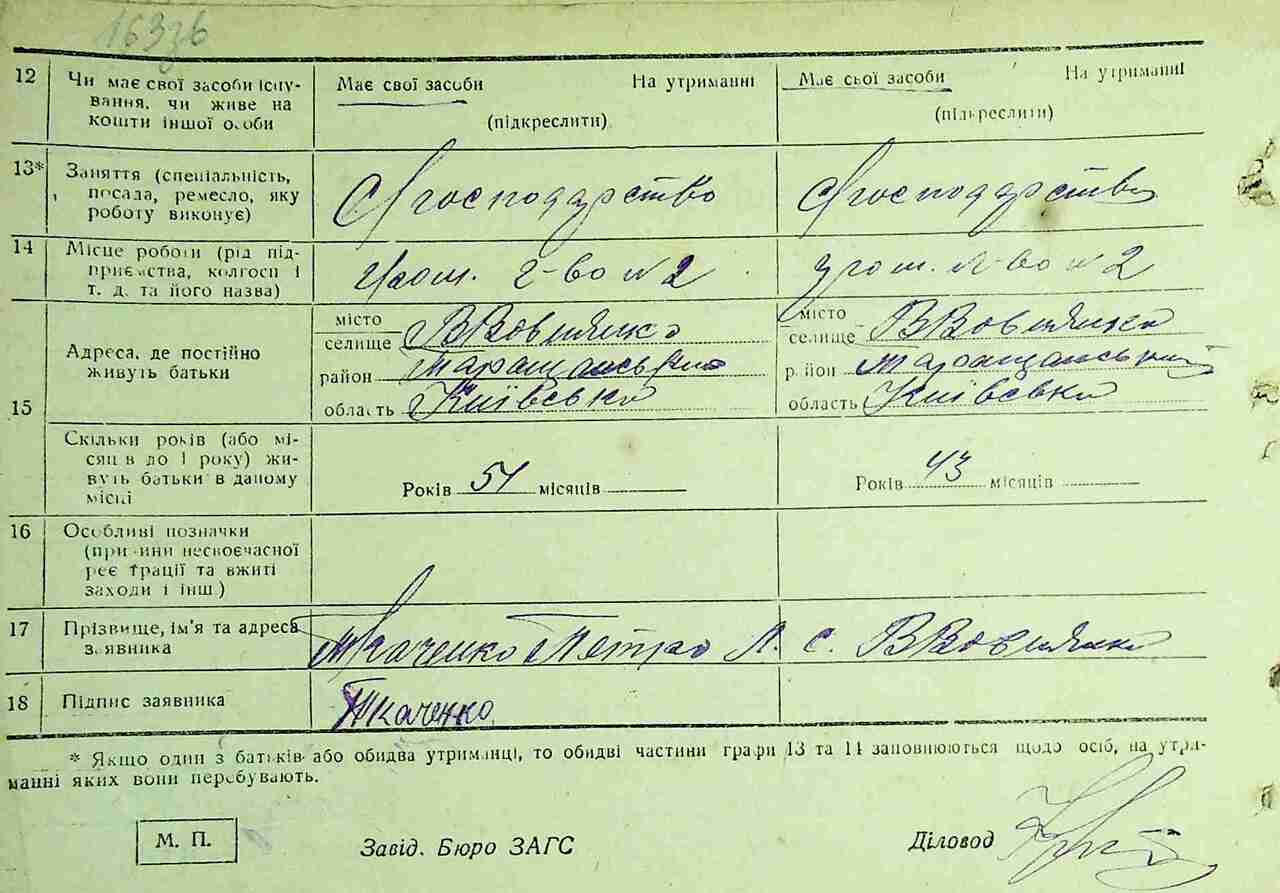 12 Чи має свої засоби існу-
вання, чи живе на
кошти іншої особи
Має свої засоби На утриманні
(підкреслити)
Має свої засоби На утриманні
(підкреслити)
13* Заняття (спеціальність,
посада, ремесло, яку
роботу виконує)
С/господарство
С/господарство
14 Місце роботи (рід під-
приємства, колгосп і
т. д. та його назва)
2-во № 2
№ 2
15 Адреса, де постійно
живуть батьки
місто
селище ВВовнянка
район Таращанський
область Київська
місто
селище ВВовнянка
район Таращанський
область Київська
Скільки років (або мі-
сяців до 1 року) жи-
вуть батьки в даному
місці
Років 51 місяців
Років 43 місяців
16 Особливі позначки
(причини несвоєчасної
реєстрації та вжиті
заходи і інш.)
17 Прізвище, ім'я та адреса
заявника
Ткаченко Петро Л. с. ВВовнянка
18 Підпис заявника
Ткаченко
* Якщо один з батьків або обидва утриманці, то обидві частини графи 13 та 14 заповнюються щодо осіб, на утри-
манні яких вони перебувають.
М. П.
Завід. Бюро ЗАГС
Діловод